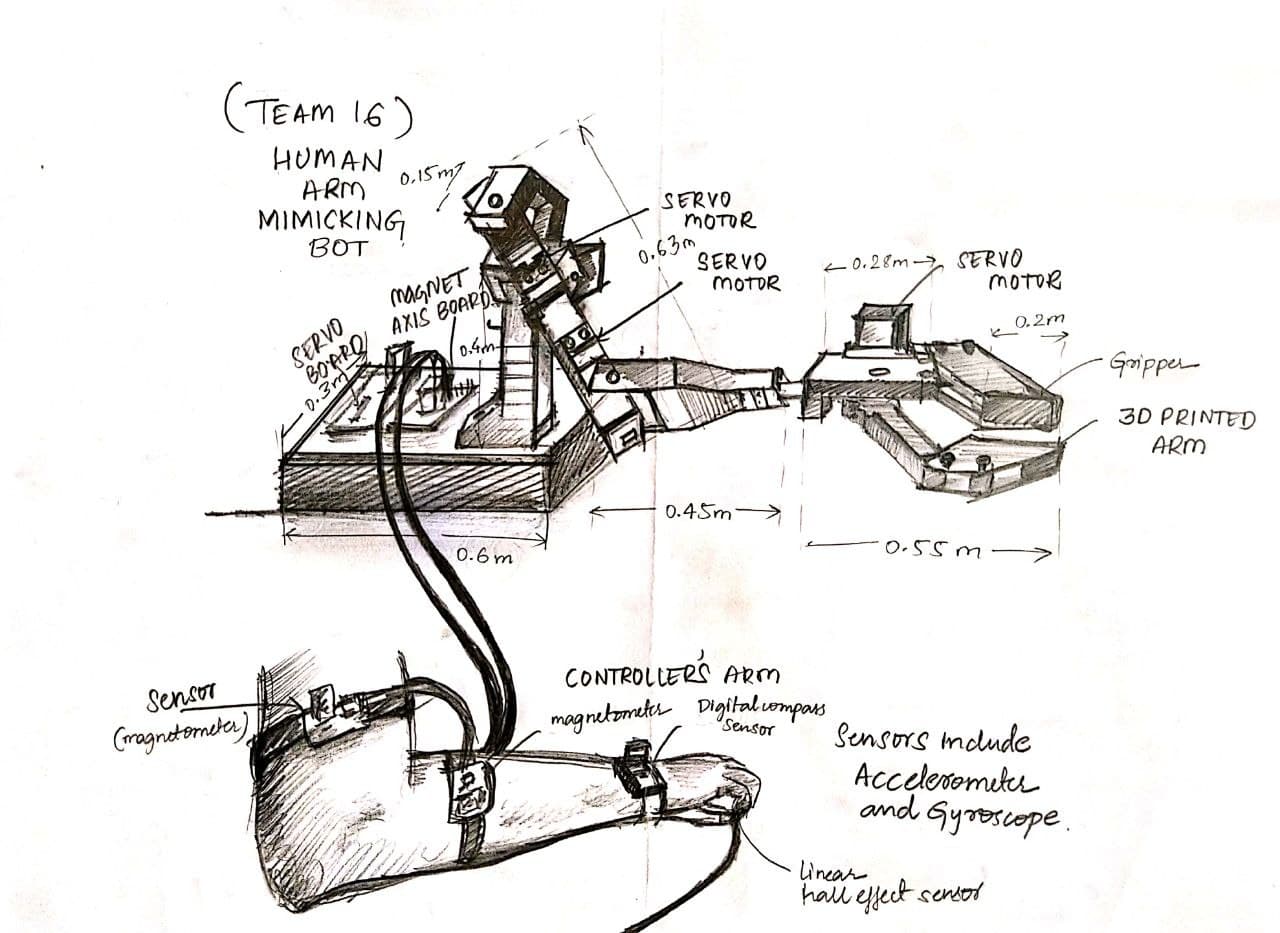 (TEAM 16)
HUMAN
ARM
MIMICKING
BOT
0.15m
SERVO
MOTOR
0.63m
SERVO
MOTOR
MAGNET
AXIS BOARD
SERVO
BOARD
0.3m
0.4m
0.28m
SERVO
MOTOR
0.2m
Gripper
3D PRINTED
ARM
0.45m
0.55 m
0.6m
CONTROLLER'S ARM
Sensor
(magnetometer)
magnetometer
Digital compass
Sensor
Sensors include
Accelerometer
and Gyroscope.
linear
hall effect sensor